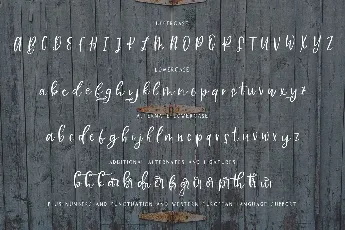 UPPERCASE
A B C D E F G H I J K L M N O P Q R S T U V W X Y Z
LOWERCASE
a b c d e f g h i j k l m n o p q r s t u v w x y z
ALTERNATE LOWERCASE
a b c d e f g h i j k l m n o p q r s t u v w x y z
ADDITIONAL ALTERNATES AND LIGATURES
PLUS NUMBERS AND PUNCTUATION AND WESTERN EUROPEAN LANGUAGE SUPPORT